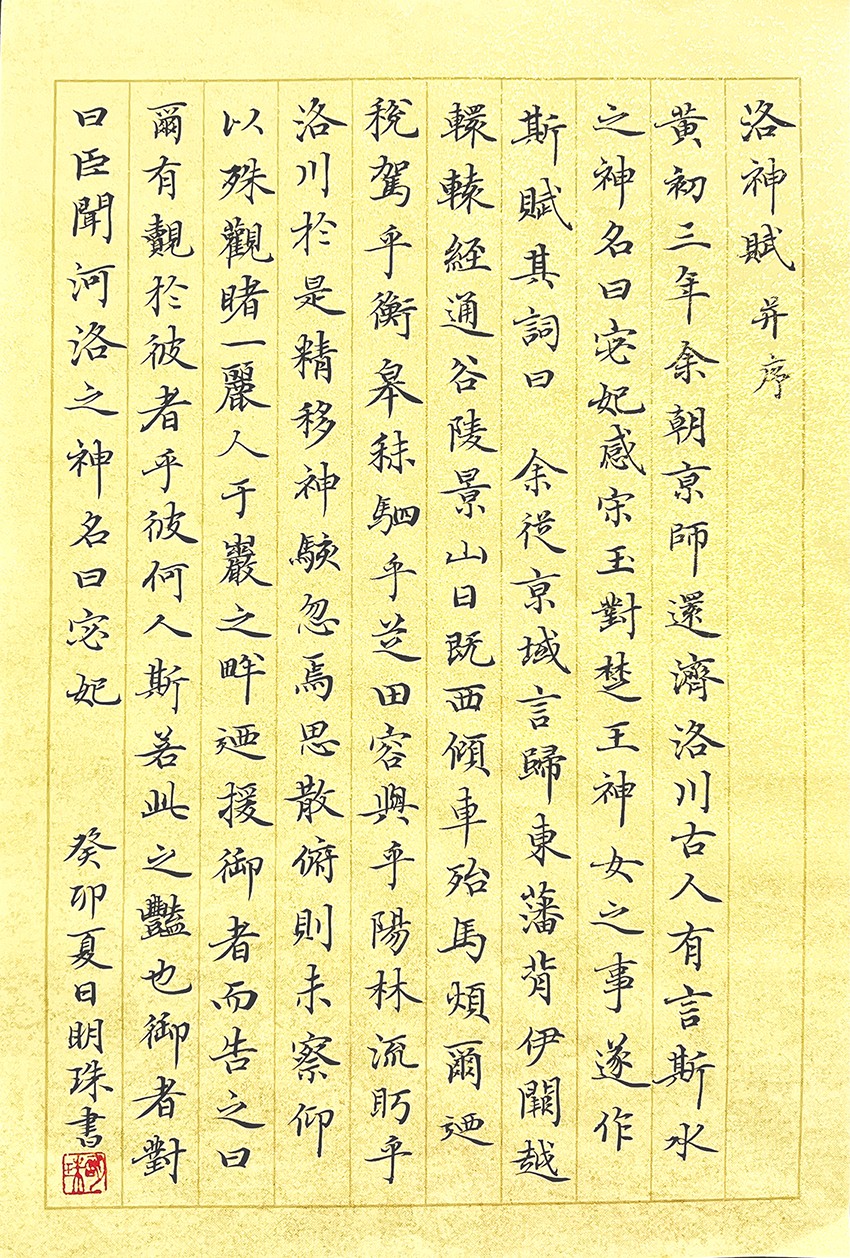 洛神賦 并序
黄初三年余朝京師還濟洛川古人有言斯水
之神名曰宓妃感宋玉對楚王神女之事遂作
斯賦其詞曰 余從京域言歸東藩背伊闕越
轘轅経通谷陵景山日既西傾車殆馬煩爾迺
稅駕乎衡皋秣駟乎芝田容與乎陽林流眄乎
洛川於是精移神駭忽焉思散俯則未察仰
以殊觀睹一麗人于巖之畔迺援御者而告之曰
爾有覿於彼者乎彼何人斯若此之豔也御者對
曰臣聞河洛之神名曰宓妃 癸卯夏日明珠書